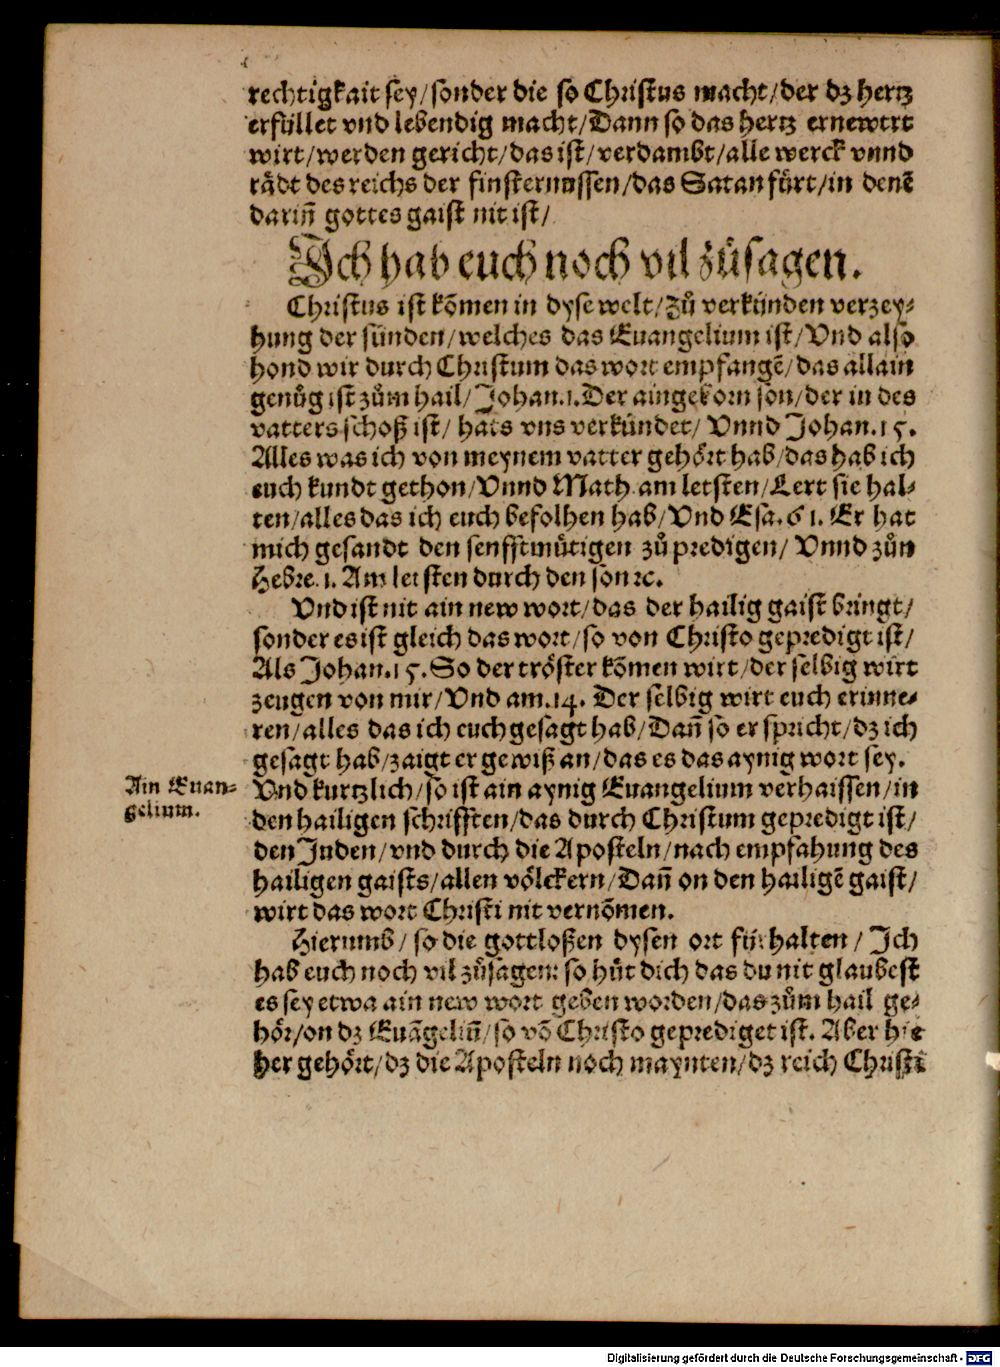 rechtigkait sey/sonder die so Christus macht/der dz hertz
erfüllet vnd lebendig macht/Dann so das hertz ernewert
wirt/werden gericht/das ist/verdambt/alle werck vnnd
rädt des reichs der finsternussen/das Satan fürt/in denē
dariñ gottes gaist nit ist/
Ich hab euch noch vil zůsagen.
Christus ist kõmen in dyse welt/zů verkünden verzey-
hung der sünden/welches das Euangelium ist/Vnd also
hond wir durch Christum das wort empfangē/das allain
genůg ist zům hail/Johan.1.Der aingeborn son/der in des
vatters schoß ist/ hats vns verkündet/ Vnnd Johan.15.
Alles was ich von meynem vatter gehört hab/das hab ich
euch kundt gethon/Vnnd Math.am letsten/Lert sie hal-
ten/alles das ich euch befolhen hab/Vnd Esa.61. Er hat
mich gesandt den senfftmütigen zů predigen/ Vnnd zůn
Hebre.1. Am letsten durch den son ꝛc.
Vnd ist nit ain new wort/das der hailig gaist bringt/
sonder es ist gleich das wort/so von Christo gepredigt ist/
Als Johan.15.So der tröster kõmen wirt/der selbig wirt
zeugen von mir/Vnd am.14. Der selbig wirt euch erinne-
ren/alles das ich euch gesagt hab/Dañ so er spricht/dz ich
gesagt hab/zaigt er gewiß an/das es das aynig wort sey.
Ain Euan-
gelium.
Vnd kurtzlich/so ist ain aynig Euangelium verhaissen/in
den hailigen schrifften/das durch Christum gepredigt ist/
den Juden/vnd durch die Aposteln/nach empfahung des
hailigen gaists/allen völckern/Dañ on den hailigē gaist/
wirt das wort Christi nit vernõmen.
Hierumb/ so die gottloßen dysen ort fürhalten/ Ich
hab euch noch vil zůsagen: so hüt dich das du nit glaubest
es sey etwa ain new wort geben worden/das zům hail ge-
hör/on dz Euãgeliũ/so võ Christo geprediget ist. Aber hie
her gehört/dz die Aposteln noch maynten/dz reich Christi
Digitalisierung gefördert durch die Deutsche Forschungsgemeinschaft - DFG